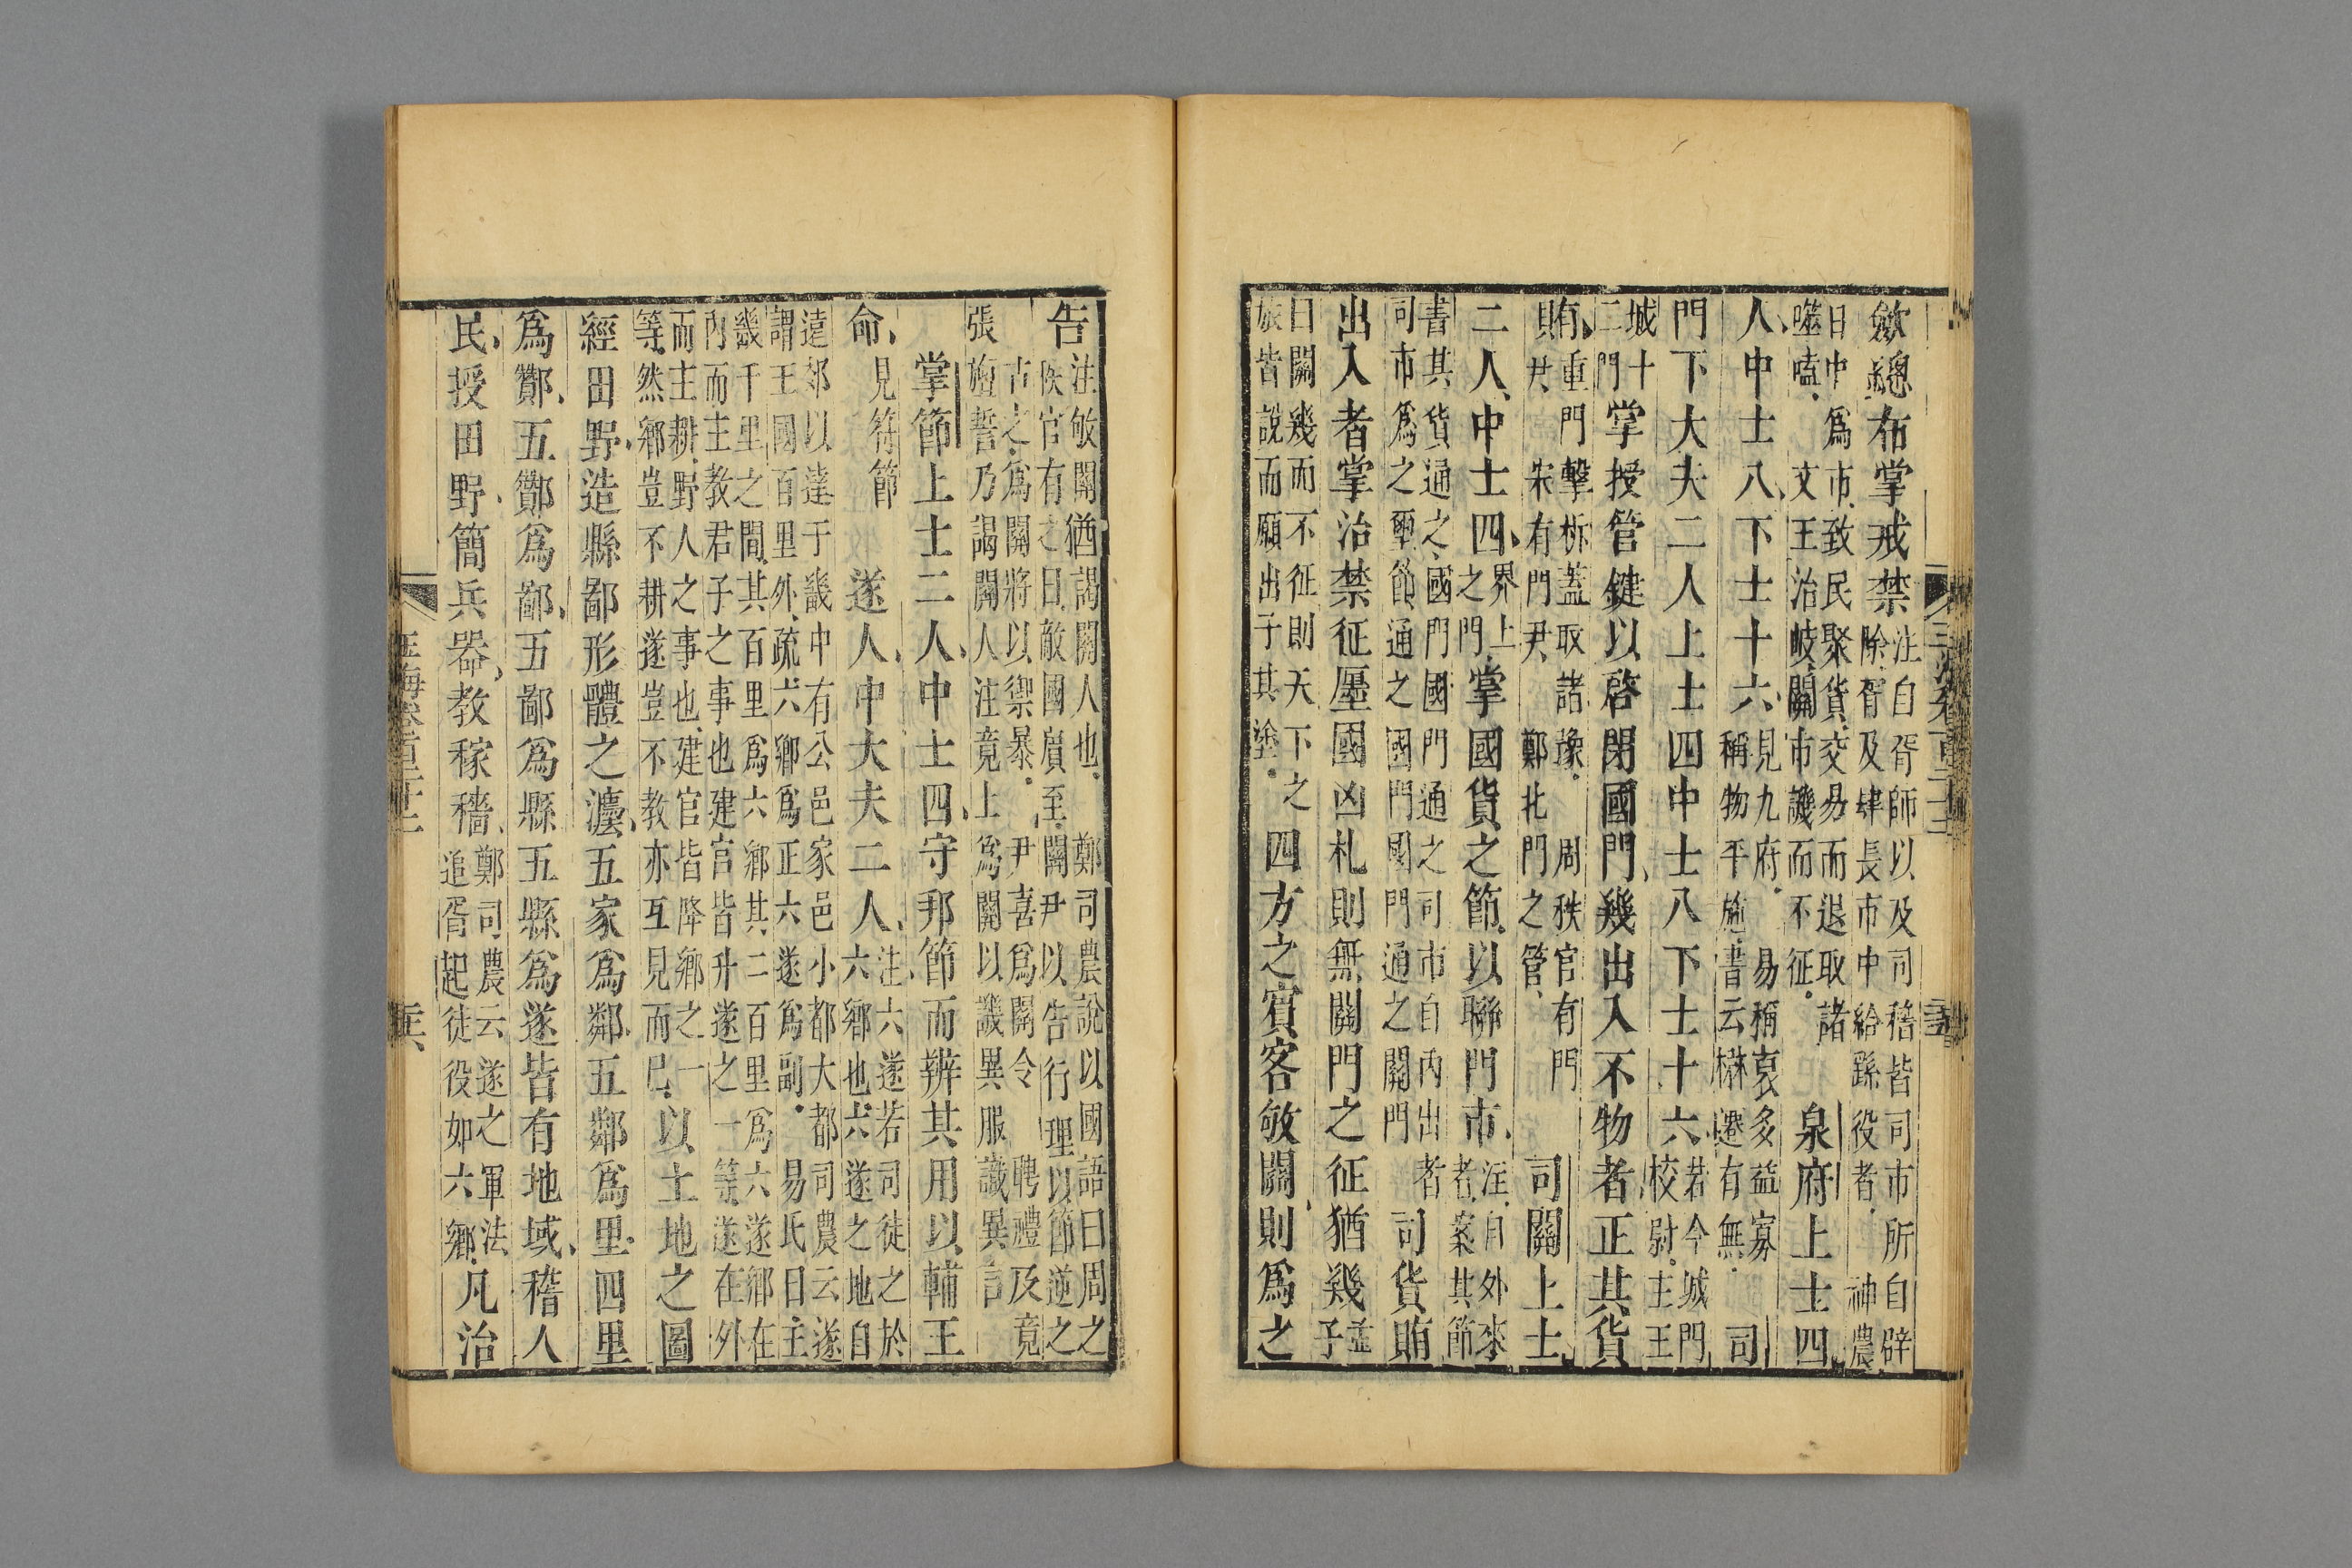 斂總布掌戒禁
注自胥師以及司稽皆司市所自辟
除胥及肆長市中給繇役者
神農
日中爲市致民聚貨交易而退取諸
噬嗑
文王治岐關市譏而不征
泉府上士四
人中士八下士十六
見九府
稱物平施
易稱裒多益寡
書云楙遷有無
司
門下大夫二人上士四中士八下士十六
若今城門
校尉主王
城十
二門
掌授管鍵以啓閉國門幾出入不物者正其貨
賄
重門擊柝蓋取諸豫
周秩官有門
尹
宋有門尹
鄭北門之管
司關上士
二人中士四
界上
之門
掌國貨之節以聯門市
注自外來
者案其節
書其貨通之國門國門通之司市自內出者
司市爲之璽節通之國門國門通之關門
司貨賄
出入者掌治禁征廛國凶札則無關門之征猶幾
孟
子
曰關幾而不征則天下之
旅皆說而願出于其塗
四方之賓客敂關則爲之
告
注敂關猶謁關人也
鄭司農說以國語曰周之
秩官有之曰敵國賓至關尹以告行理以節逆之
古之爲關將以禦暴
尹喜爲關令
聘禮及竟
張旜誓乃謁關人注竟上爲關以譏異服識異言
掌節上士二人中士四守邦節而辨其用以輔王
命
見符節
遂人中大夫二人
注六遂若司徒之於
六鄉也六遂之地自
遠郊以達于畿中有公邑家邑小都大都司農云遂
謂王國百里外疏六鄉爲正六遂爲副
易氏曰主
畿千里之間其百里爲六鄉其二百里爲六遂鄉在
內而主教君子之事也建官皆升遂之一等遂在外
而主耕野人之事也建官皆降鄉之一
等然鄉豈不耕遂豈不教亦互見而已
以土地之圖
經田野造縣鄙形體之灋五家爲鄰五鄰爲里四里
爲酇五酇爲鄙五鄙爲縣五縣爲遂皆有地域稽人
民授田野簡兵器教稼穡
鄭司農云遂之軍法
追胥起徒役如六鄉
凡治